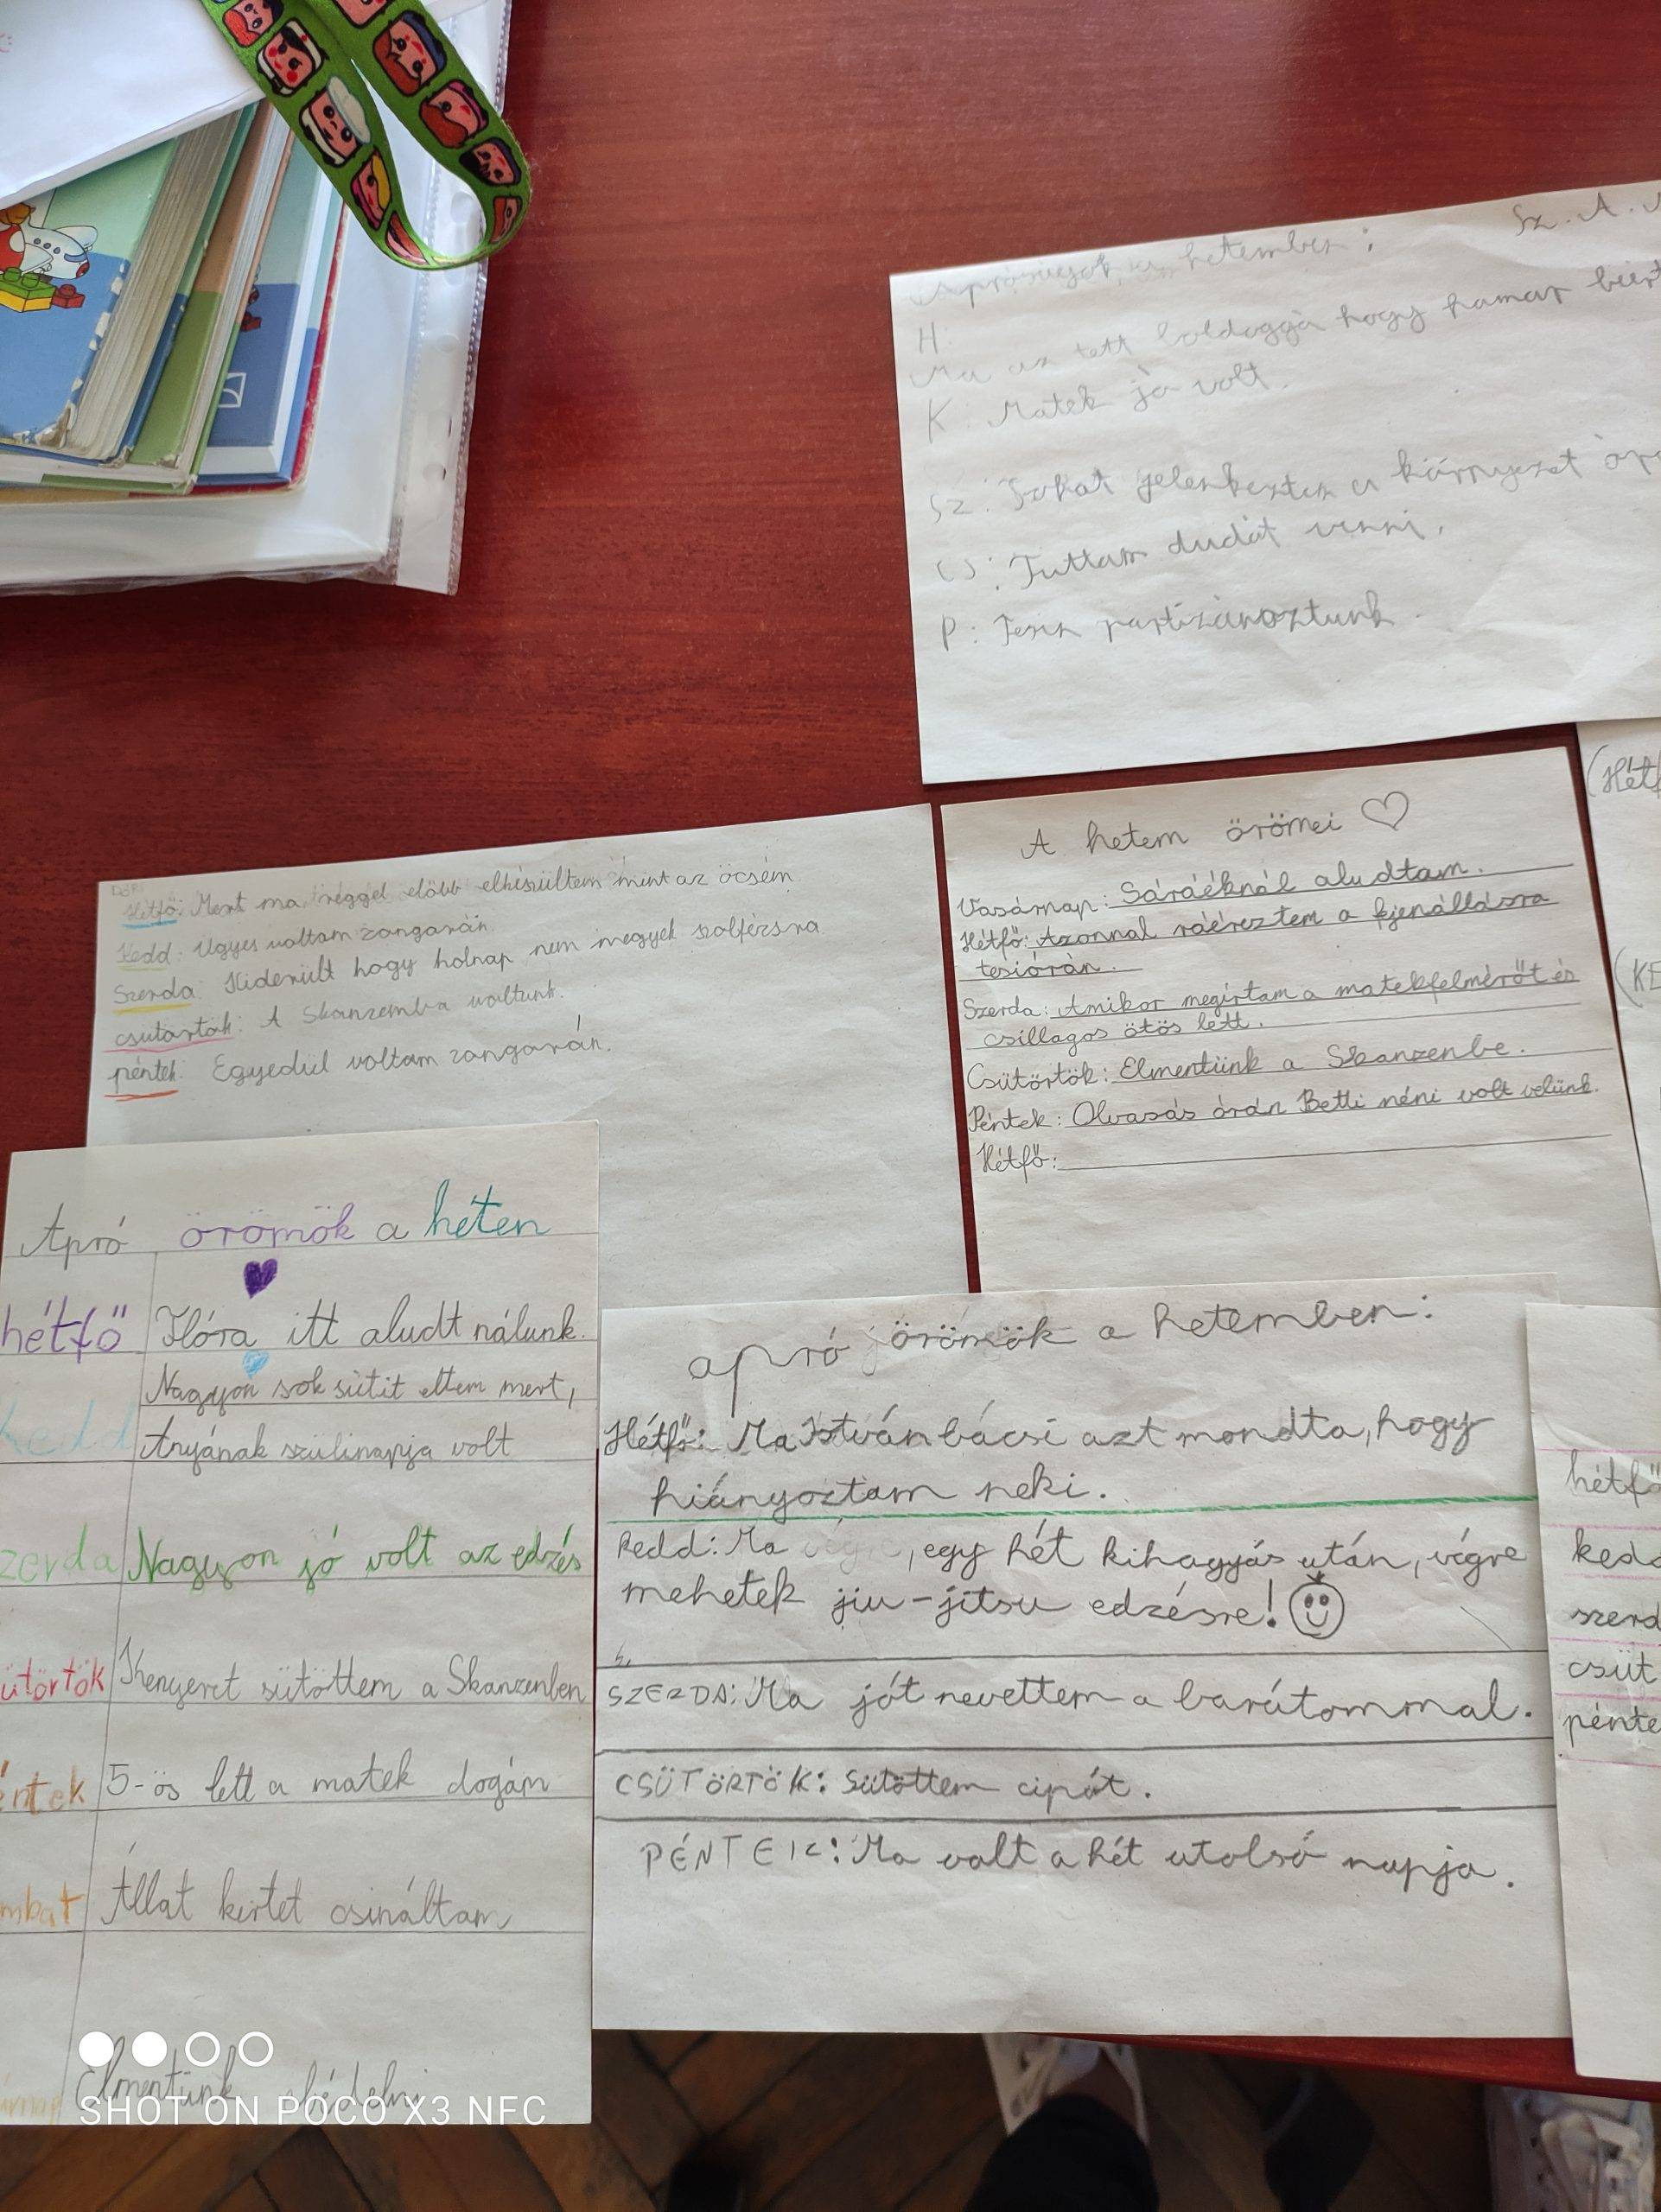 Sz. A. 
hetemben:
H:
Ma az tett boldoggá hogy hamar
K: Matek jó volt.
Sz: Sokat jelenkeztem a környezet
Cs: Tuttam dudát venni.
P: Tesin partizánoztunk.
Hétfő: Mert ma reggel előbb elkészültem mint az öcsém
Kedd: Ügyes voltam zongorán.
Szerda: Kiderült hogy holnap nem megyek szolfézsra
csütörtök: A Skanzemba voltunk.
péntek: Egyedül voltam zongorán.
A hetem örömei
Vasárnap: Sáráéknál aludtam.
Hétfő: Azonnal ráéreztem a fejenállásra
tesiórán.
Szerda: Amikor megírtam a matekfelmérőt és
csillagos ötös lett.
Csütörtök: Elmentünk a Skanzenbe.
Péntek: Olvasás órán Betti néni volt velünk.
Hétfő:
Apró örömök a héten
hétfő Flóra itt aludt nálunk.
kedd Nagyon sok sütit ettem mert,
Anyának szülinapja volt
zerda Nagyon jó volt az edzés
ütörtök Kenyeret sütöttem a Skanzenben
éntek 5-ös lett a matek dogám
mbat Állat kertet csináltam
Elmentünk ebédelni
apró örömök a hetemben:
Hétfő: Ma István bácsi azt mondta, hogy
hiányoztam neki.
Kedd: Ma végre, egy hét kihagyás után, végre
mehetek jiu-jitsu edzésre!
SZERDA: Ma jót nevettem a barátommal.
CSÜTÖRTÖK: Sütöttem cipót.
PÉNTEK: Ma volt a hét utolsó napja.
(Hétf
(KE
hétfő
kedd
szerd
csüt
pénte
SHOT ON POCO X3 NFC